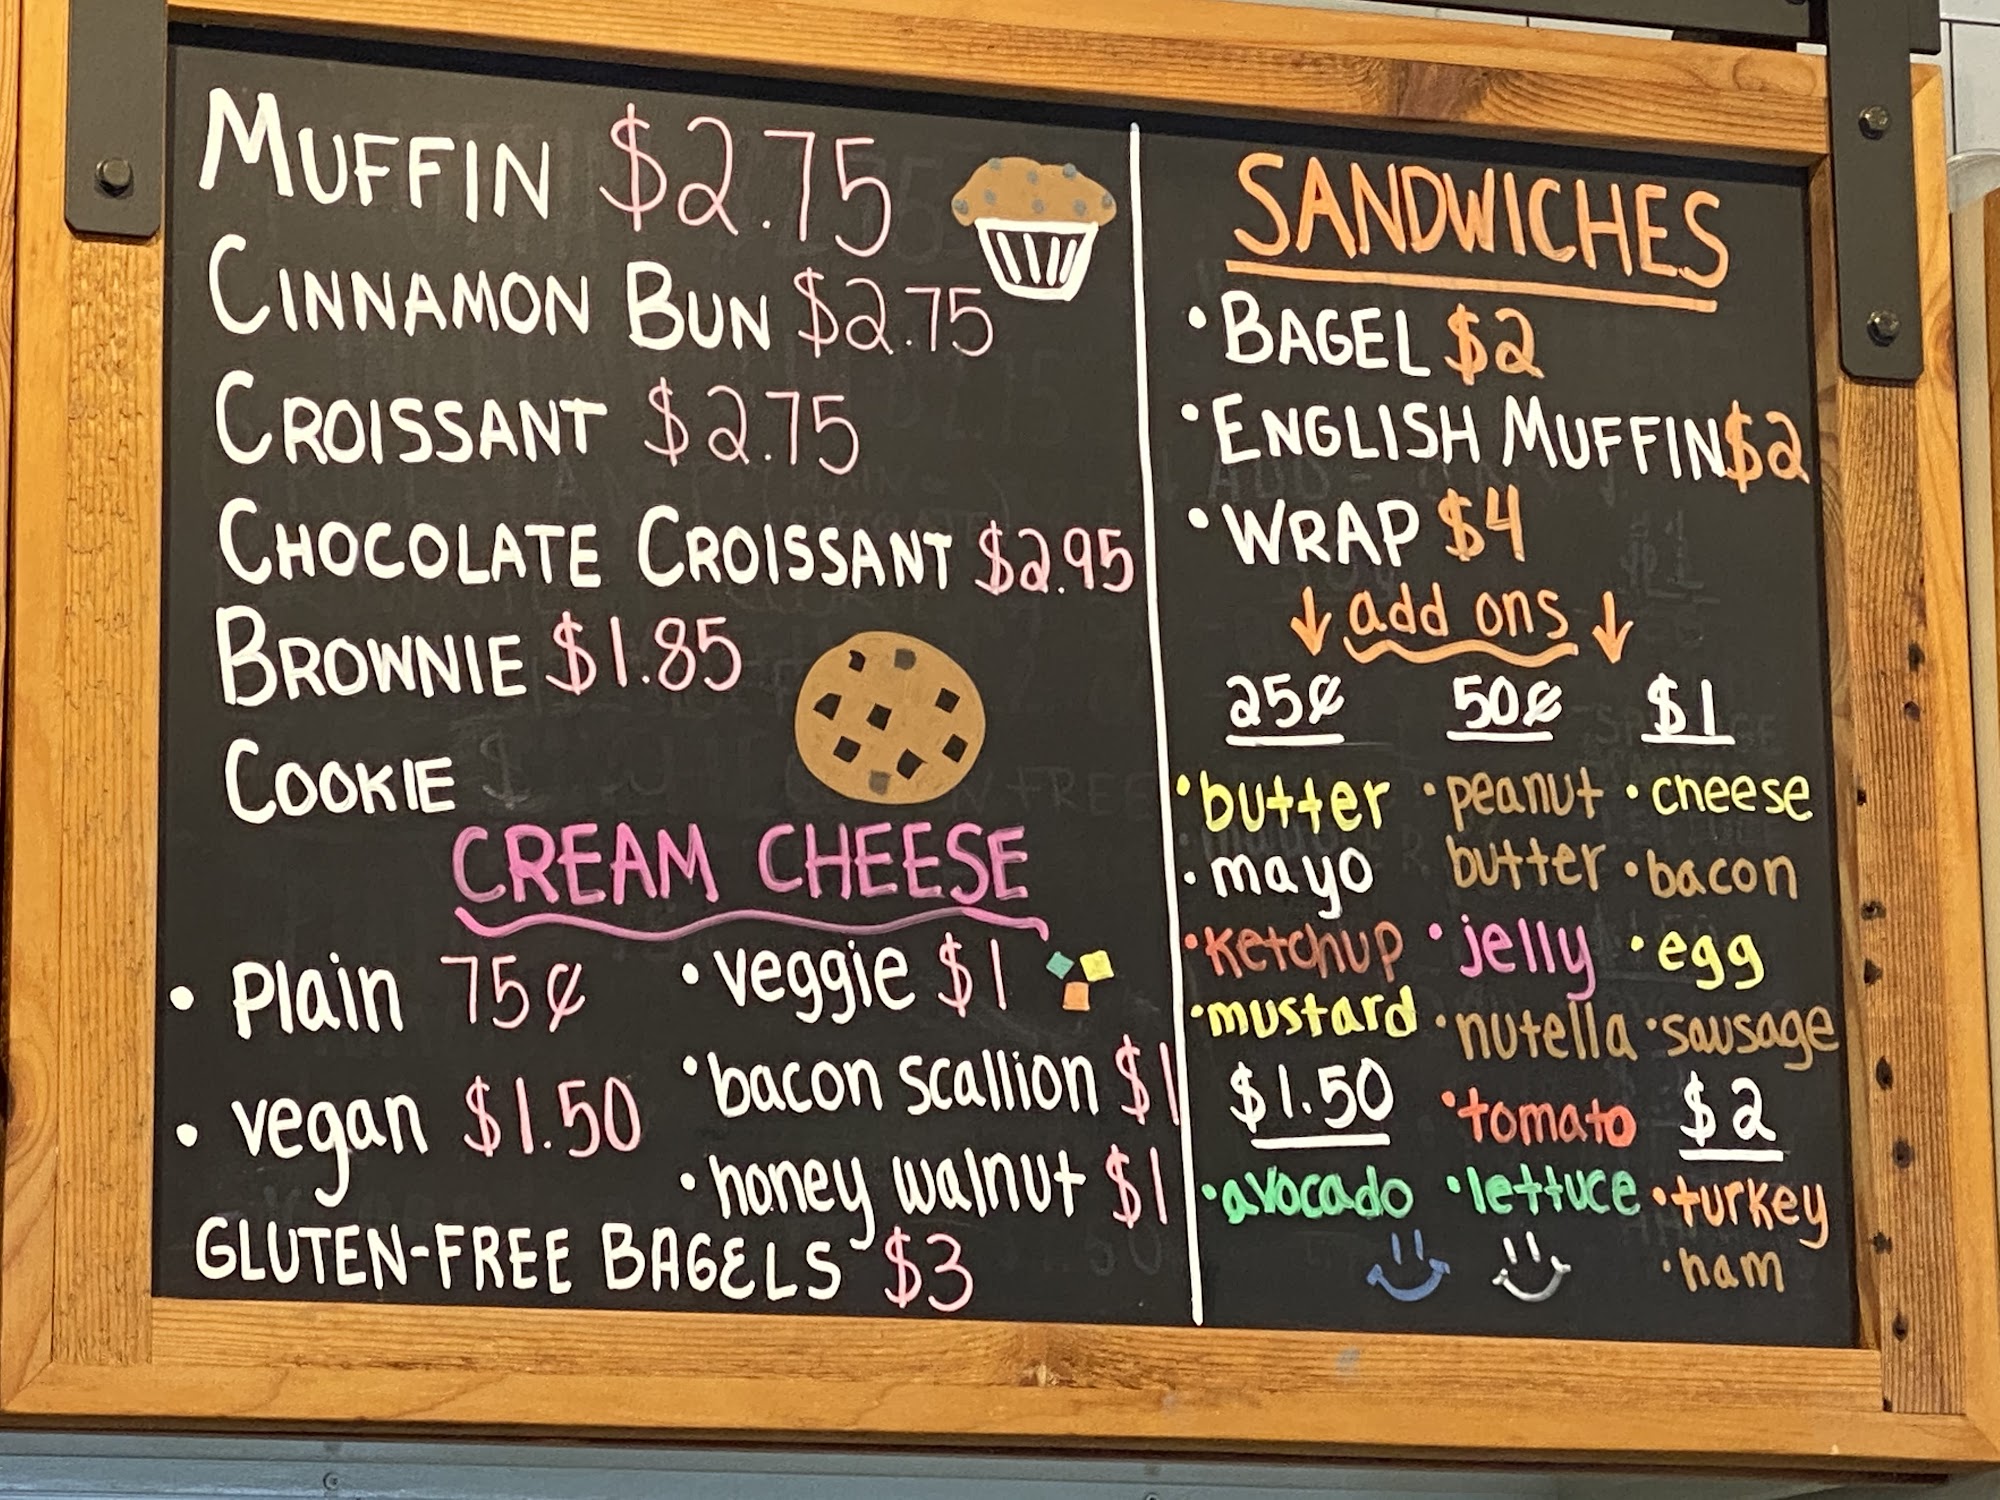 MUFFIN $2.75
CINNAMON BUN $2.75
CROISSANT $2.75
CHOCOLATE CROISSANT $2.95
BROWNIE $1.85
COOKIE
CREAM CHEESE
• Plain 75¢
• veggie $1
• vegan $1.50
• bacon scallion $1
• honey walnut $1
GLUTEN-FREE BAGELS $3
SANDWICHES
• BAGEL $2
• ENGLISH MUFFIN $2
• WRAP $4
↓ add ons ↓
25¢
• butter
• mayo
• ketchup
• mustard
$1.50
• avocado
50¢
• peanut
butter
• jelly
• nutella
• tomato
• lettuce
$1
• cheese
• bacon
• egg
• sausage
$2
• turkey
• ham